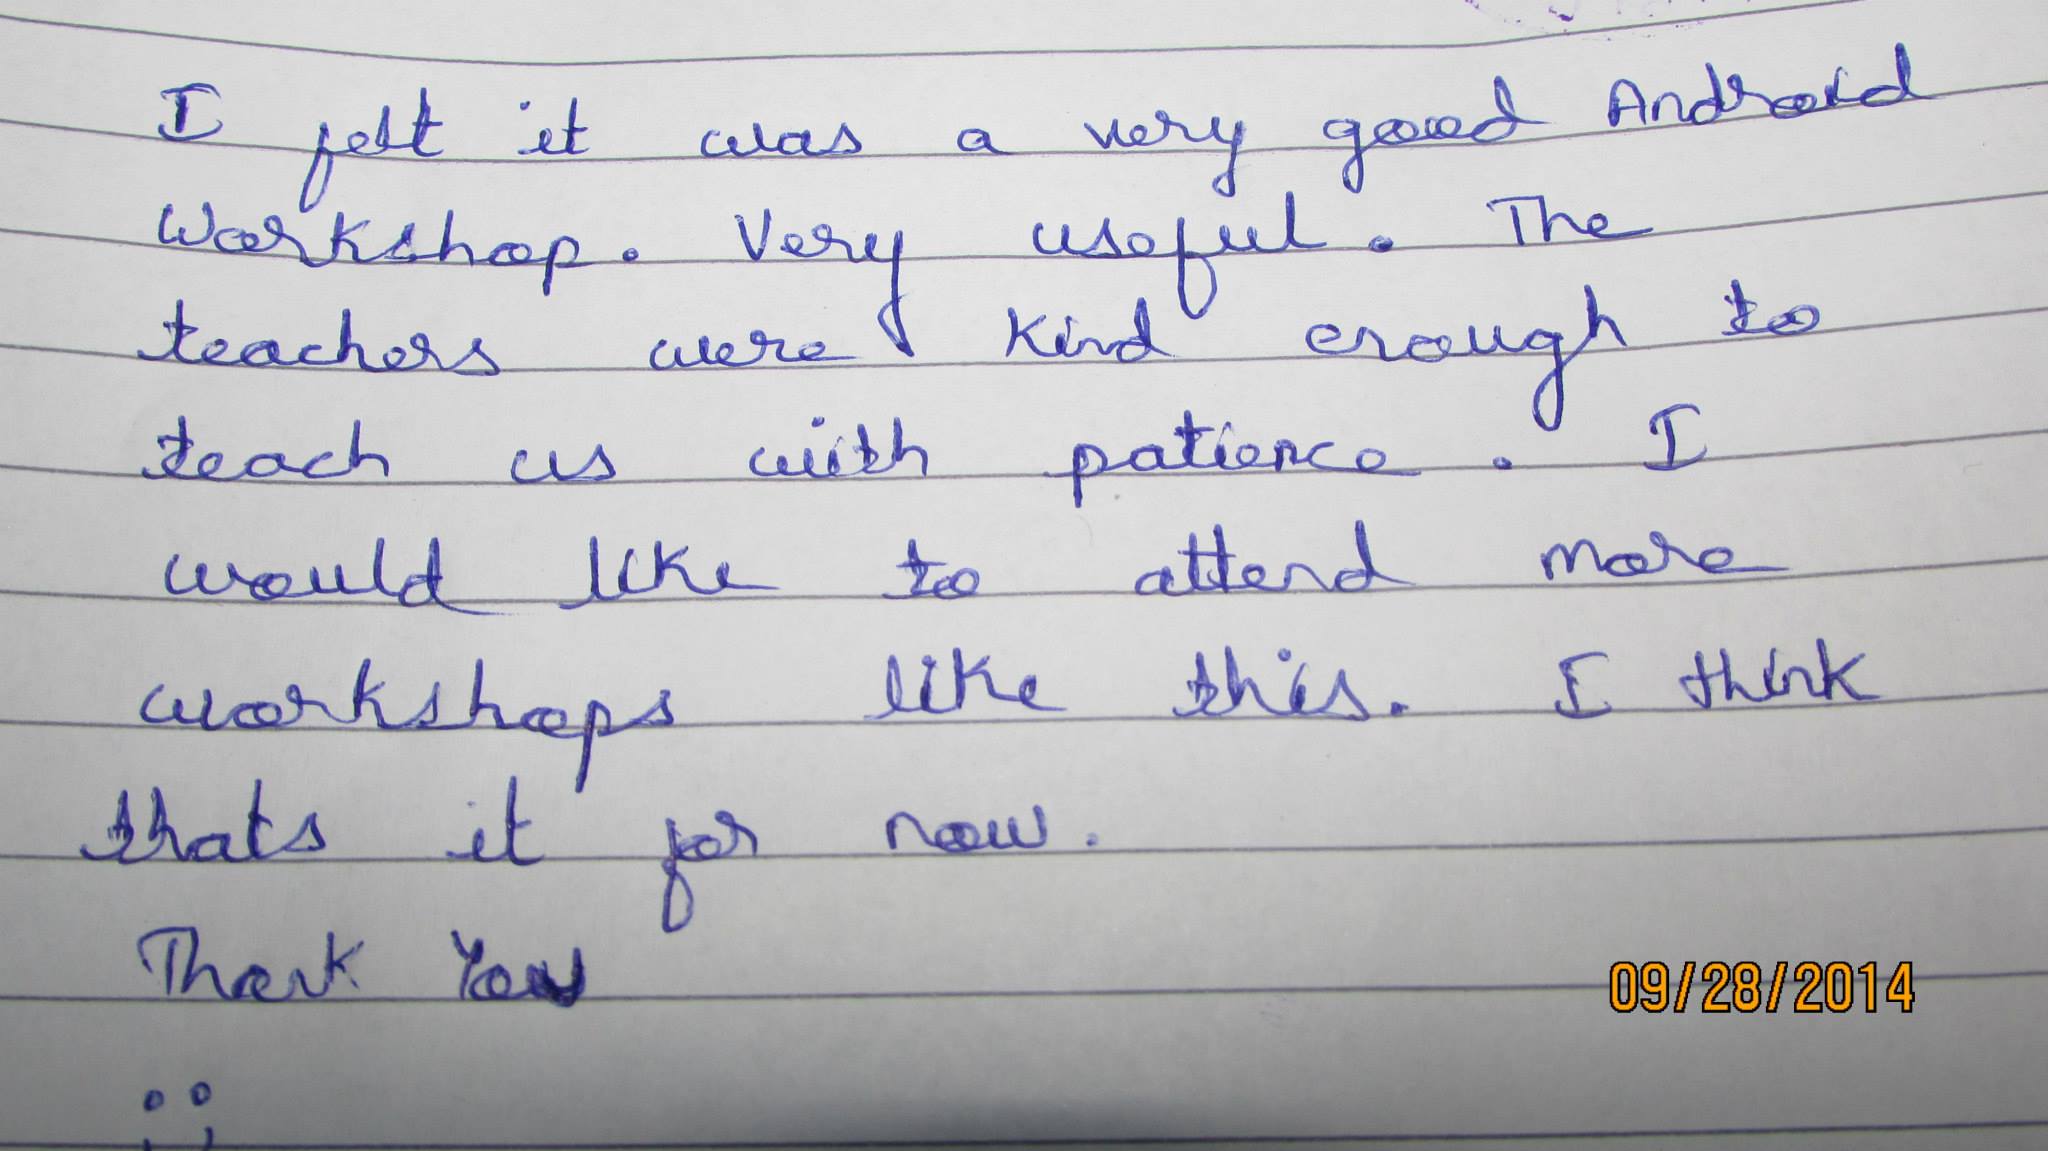 I felt it was a very good Android
Workshop. Very useful. The
teachers were kind enough to
teach us with patience. I
would like to attend more
workshops like this. I think
thats it for now.
Thank You
09/28/2014